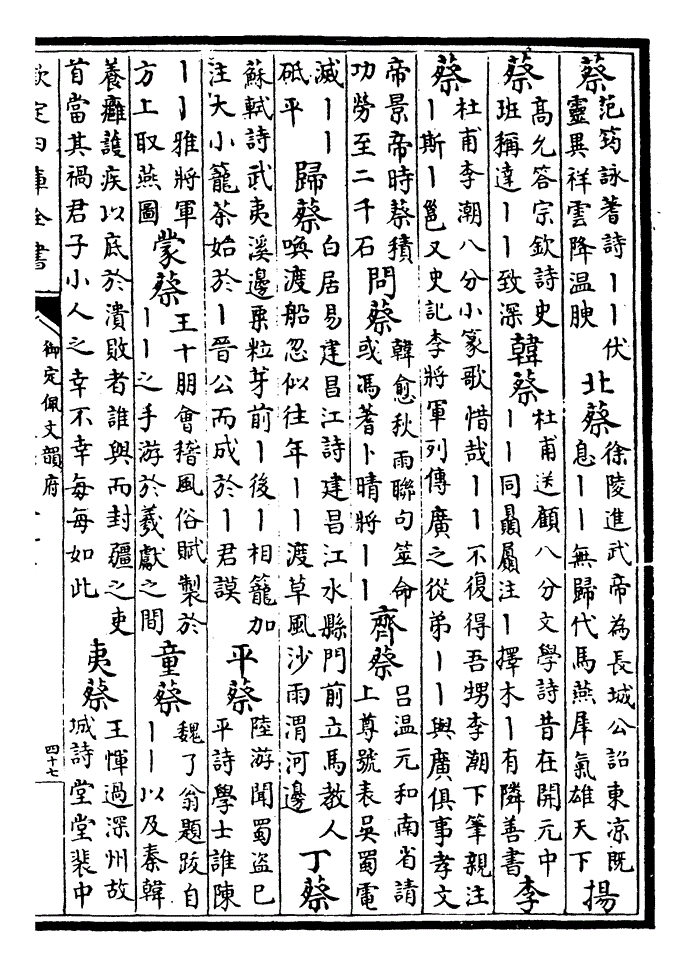 蔡 范筠詠蓍詩丨丨伏
靈異祥雲降温腴 北蔡 徐陵進武帝為長城公詔東凉既
息丨丨無歸代馬燕犀氣雄天下 揚
蔡 高允答宗欽詩史
班稱達丨丨致深 韓蔡 杜甫送顧八分文學詩昔在開元中
丨丨同贔屭注丨擇木丨有隣善書 李
蔡 杜甫李潮八分小篆歌惜哉丨丨不復得吾甥李潮下筆親注
丨斯丨邕又史記李將軍列傳廣之從弟丨丨與廣俱事孝文
帝景帝時蔡積
功勞至二千石 問蔡 韓愈秋雨聯句筮命
或馮蓍卜晴將丨丨 齊蔡 吕温元和南省請
上尊號表吳蜀電
滅丨丨
砥平 歸蔡 白居易建昌江詩建昌江水縣門前立馬教人
喚渡船忽似往年丨丨渡草風沙雨渭河邊 丁蔡
蘇軾詩武夷溪邊粟粒芽前丨後丨相籠加
注大小龍茶始於丨晉公而成於丨君謨 平蔡 陸游聞蜀盗已
平詩學士誰陳
丨丨雅將軍
方上取燕圖 蒙蔡 王十朋會稽風俗賦製於
丨丨之手游於羲獻之間 童蔡 魏了翁題跋自
丨丨以及秦韓
養癰護疾以底於潰敗者誰與而封疆之吏
首當其禍君子小人之幸不幸每每如此 夷蔡 王惲過深州故
城詩堂堂裴中
欽定四庫全書
御定佩文韻府
四十七